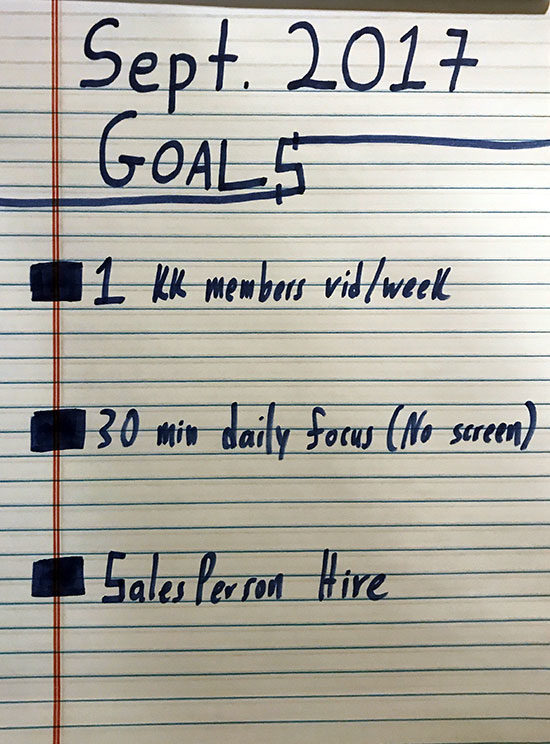 Sept. 2017
GOALS
1 KK members vid/week
30 min daily focus (No screen)
SalesPerson Hire